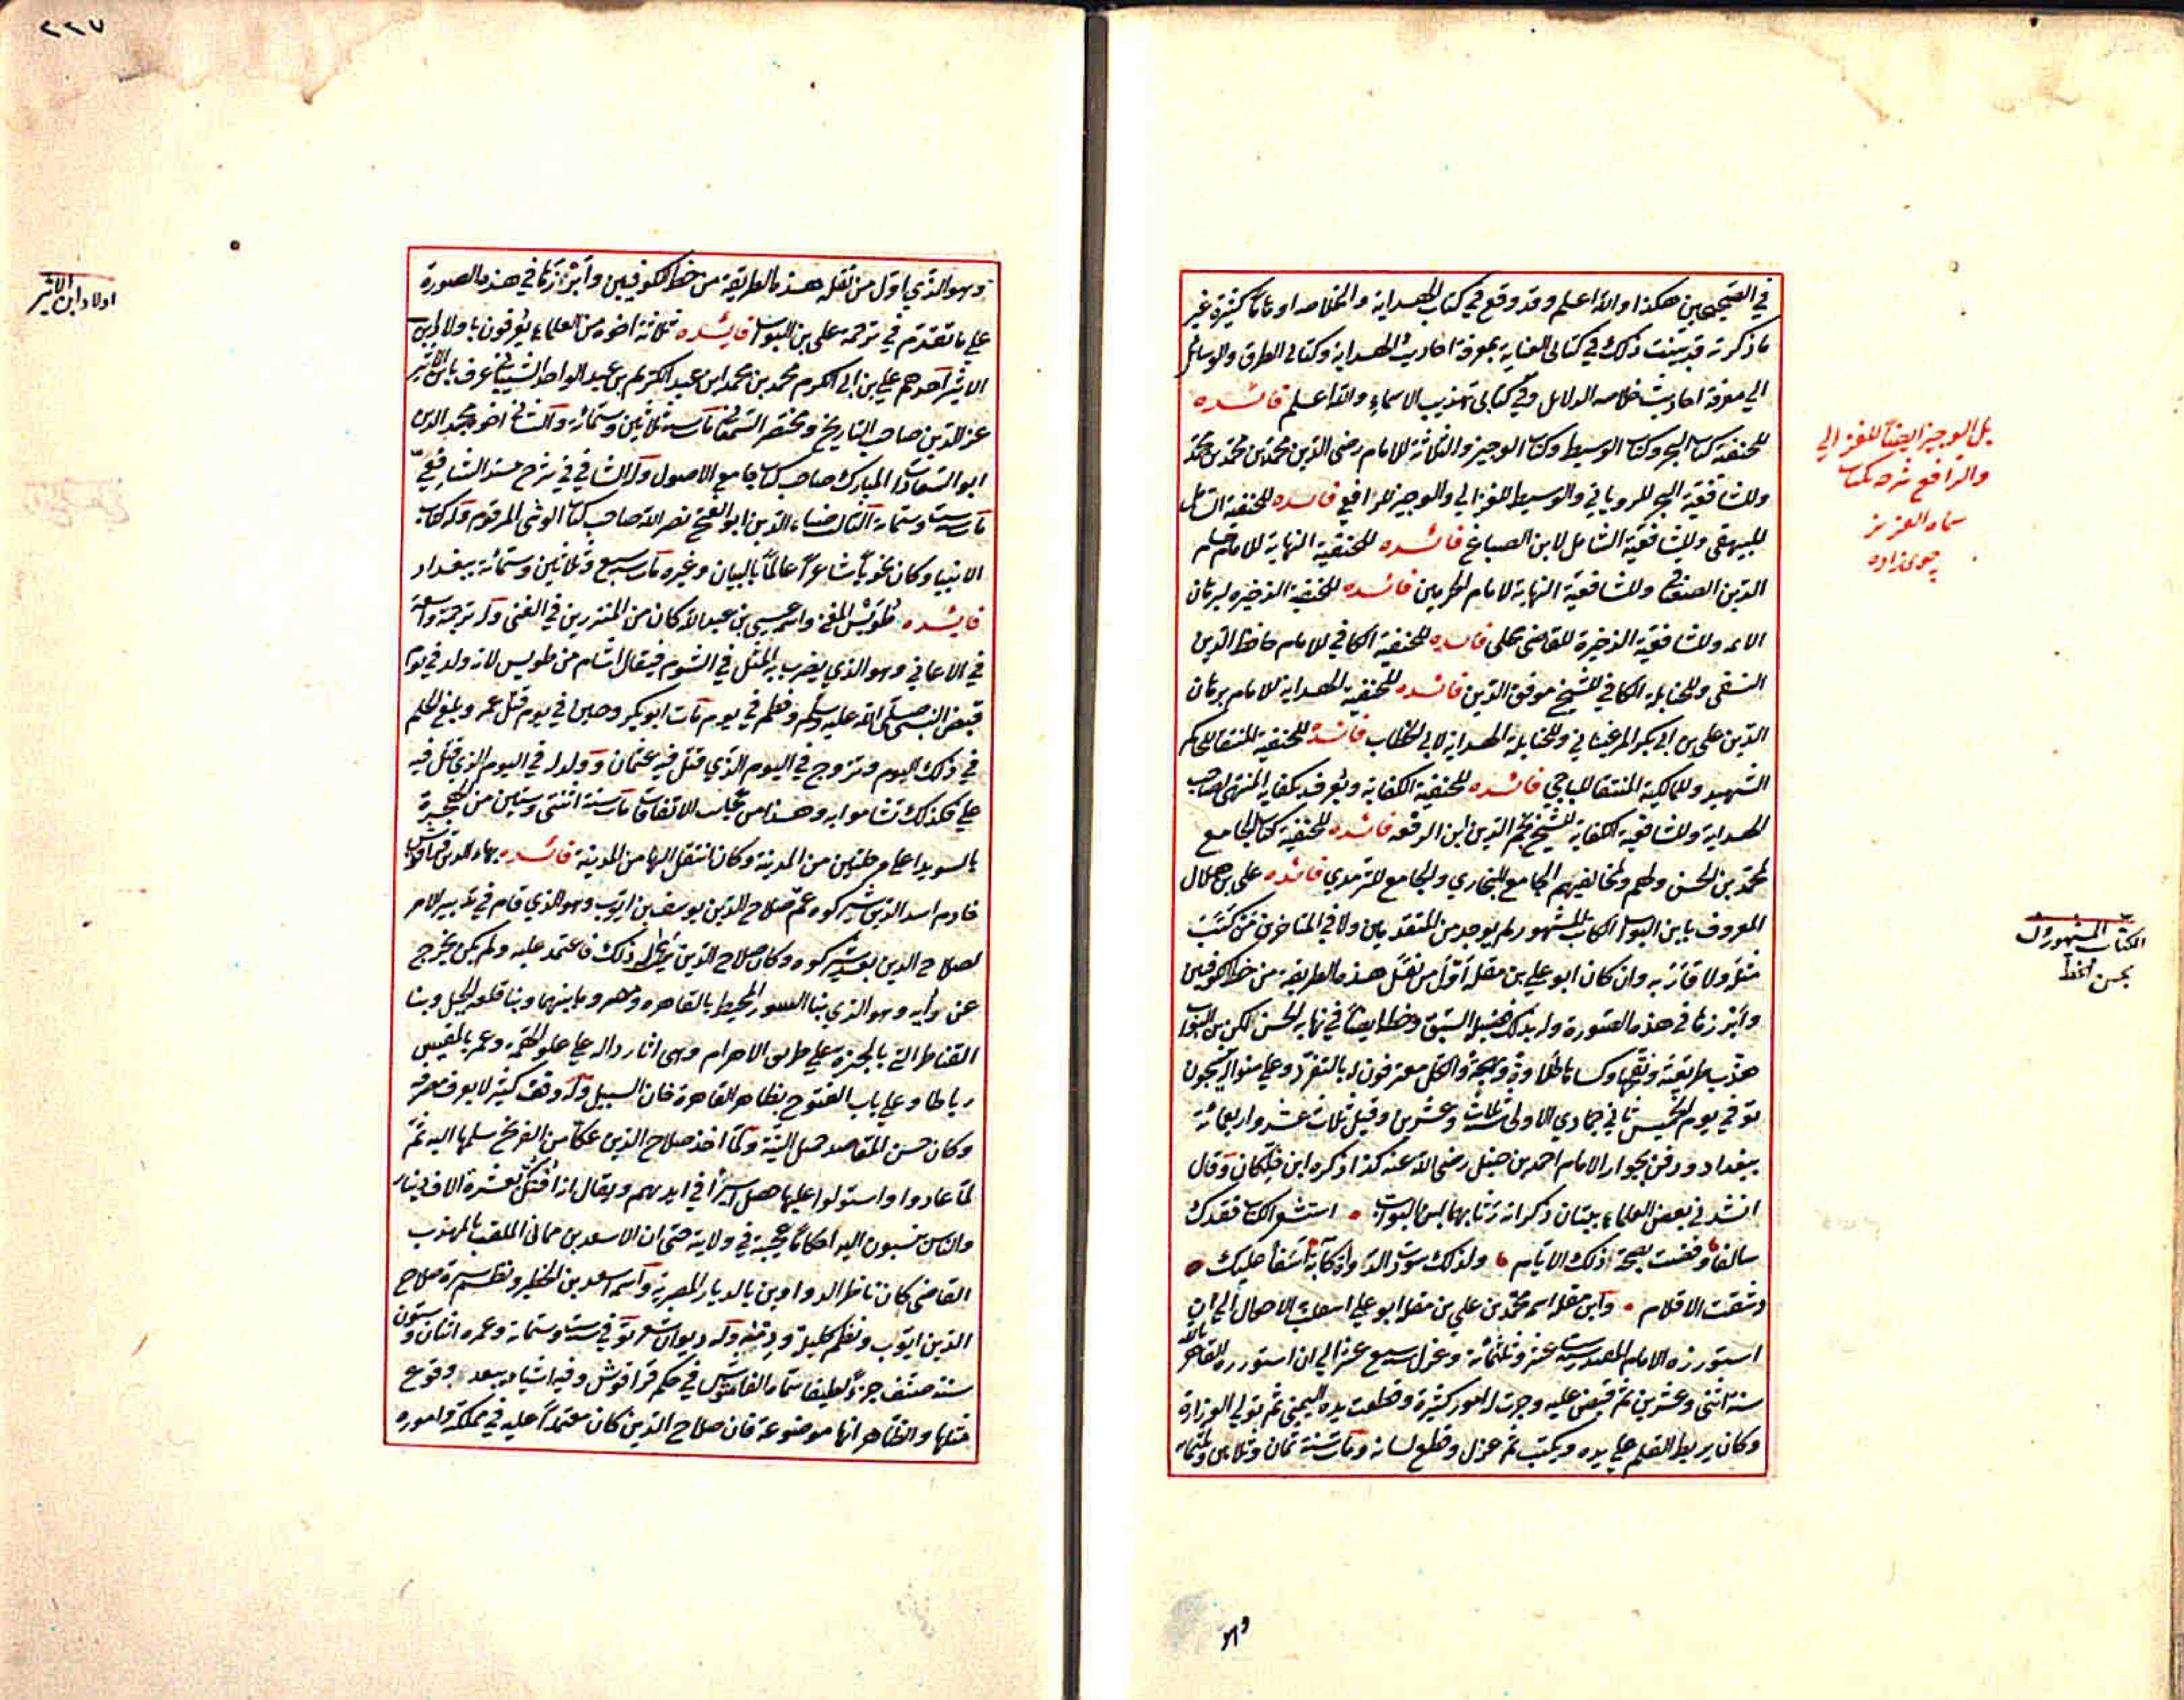 في الصحيحين هكذا والله اعلم وقد وقع في كتاب الهداية والخلاصه اوهاما كثيرة غير
ما ذكرته قد بينت ذلك في كتابي العناية بمعرفة احاديث الهداية وكتابي الطرق والوسائل
الي معرفة احاديث خلاصه الدلائل وفي كتابي تهذيب الاسماء والله اعلم فائده
للحنفية كتاب البحر وكتاب الوسيط وكتاب الوجيز والثلاثة للامام رضى الدين محمد بن محمد بن محمد
وللشافعية البحر للروياني والوسيط للغزالي والوجيز للرافعي فائده للحنفية الشامل
للبيهقى وللشافعية الشامل لابن الصباغ فائده للحنفية النهاية للامام حسام
الدين الصغناقي وللشافعية النهاية لامام الحرمين فائده للحنفية الذخيره لبرهان
الائمه وللشافعية الذخيرة للقاضى مجلى فائده للحنفية الكافي للامام حافظ الدين
النسفى وللحنابلة الكافي للشيخ موفق الدين فائده للحنفية الهداية للامام برهان
الدين على بن ابي بكر المرغيناني وللحنابلة الهداية لابي الخطاب فائدة للحنفية المنتقا للحاكم
الشهيد وللمالكية المنتقا للباجي فائده للحنفية الكفاية ويعرف بكفاية المنتهى لصاحب
الهداية وللشافعية الكفاية للشيخ نجم الدين ابن الرفعه فائده للحنفية كتاب الجامع
لمحمد بن الحسن ولهم ولمخالفيهم الجامع للبخاري والجامع للترمدي فائده على بن هلال
المعروف بابن البواب الكاتب المشهور لم يوجد من المتقدمين ولا في المتاخرين من كتب
مثله ولا قاربه وان كان ابو علي بن مقله اول من نقل هذه الطريقه من خط الكوفيين
وابرزها في هذه الصورة وله بذلك فضيلة السبق وخطه ايضا في نهاية الحسن لكن بن البواب
هذب طريقته ونقحها وكساها طلاوة وبهجة والكل معترفون له بالتفرد وعلي منواله ينسجون
توفي يوم الخميس ثاني جمادي الاولى سنة ثلاث وعشرين وقيل ثلاث عشر واربعمائة
ببغداد ودفن بجوار الامام احمد بن حنبل رضى الله عنه كذا ذكره ابن خلكان وقال
انشدني بعض العلماء بيتان ذكر انه رثا بهما ابن البواب • استشعر الكتاب فقدك
سالفا وقضت بصحة ذلك الايام • ولذلك سودت الدوي كآبة اسفا عليك •
وشقت الاقلام • وابن مقله اسمه محمد بن علي بن مقله ابو علي استعلت به الاحوال الي ان
استوزره الامام المقتدر سنة ست عشر وثلثمائة وعزل سنة سبع عشر الي ان استوزره القاهر بالله
سنة اثنى وعشرين ثم قبض عليه وجرت له امور كثيرة وقطعت يده اليمنى ثم تولي الوزارة
وكان يربط القلم علي يده ويكتب ثم عزل وقطع لسانه ومات سنة ثمان وثلاثين وثلثمائه
بل الوجيز ايضا للغزالي
والرافعي شرحه بكتاب
سماه العزيز
چوى زاده
الكتاب المشهورون
بحسن الخط
وهو
٢٢٧
وهو الذي اول من نقل هذه الطريقة من خط الكوفيين وابرزها في هذه الصورة
علي ما تقدم في ترجمة على بن البواب فائده ثلاثة اخوه من العلماء يعرفون باولاد ابن
الاثير احدهم علي بن ابي الكرم محمد بن محمد ابن عبد الكريم بن عبد الواحد الشيباني عرف بابن الاثير
عز الدين صاحب التاريخ ومختصر السمعاني مات سنة ثلاثين وستمائة والثاني اخوه مجد الدين
ابو السعادات المبارك صاحب كتاب جامع الاصول وله الشافي في شرح مسند الشافعي
مات سنة ست وستمائة الثالث ضياء الدين ابو الفتح نصر الله صاحب كتاب الوشى المرقوم وله كتاب
الانبيا وكان نحويا شاعرا عالما بالبيان وغيره مات سنة سبع وثلاثين وستمائه ببغداد
فائده طويس المغني واسمه عيسى بن عبد الله كان من المبرزين في الغنى وله ترجمة واسعة
في الاغاني وهو الذي يضرب به المثل في الشوم فيقال اشام من طويس لانه ولد في يوم
قبض النبي صلى الله عليه وسلم وفطم في يوم مات ابو بكر وختن في يوم قتل عمر وبلغ الحلم
في ذلك اليوم وتزوج في اليوم الذي قتل فيه عثمان وولد له في اليوم الذي قتل فيه
علي فلذلك تشاموا به وهذا من عجائب الاتفاقات مات سنة اثنتى وستين من الهجرة
بالسويدا على مرحلتين من المدينة وكان انتقل اليها من المدينة فائده بهاء الدين قراقوش
خادم اسد الدين شيركوه عم صلاح الدين يوسف بن ايوب وهو الذي قام في تدبير الامر
لصلاح الدين بعد شيركوه وكان صلاح الدين يرا له ذلك فاعتمد عليه ولم يكن يخرج
عن رأيه وهو الذي بنا السور المحيط بالقاهره ومصر وما بينهما وبنا قلعة الجبل وبنا
القناطر التي بالجيزة علي طريق الاهرام وهى اثار داله علي علو الهمة وعمر بالمقسم
رباطا وعلي باب الفتوح بظاهر القاهرة خان السبيل وله وقف كثير لا يعرف مصرفه
وكان حسن المقاصد جميل النية ولما اخذ صلاح الدين عكا من الفرنج سلمها اليه ثم
لما عادوا واستولوا عليها حصل اسيرا في ايديهم ويقال انه افتك بعشرة الاف دينار
والناس ينسبون اليه احكاما عجيبة في ولايته حتى ان الاسعد بن مماتي الملقب بالمهذب
القاضى كان ناظر الدواوين بالديار المصرية واسمه اسعد بن الخطير ونظم سيرة صلاح
الدين ايوب ونظم كليلة ودمنه وله ديوان شعر توفي سنة ست وستمائة وعمره اثنان وستون
سنة صنف جزءا لطيفا سماه الفاشوش في حكم قراقوش وفيه اشياء يبعد وقوع
مثلها والظاهر انها موضوعة فان صلاح الدين كان معتمدا عليه في مملكته واموره
اولاد ابن الاثير